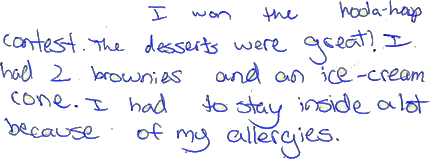 I won the hoola-hoop
contest. The desserts were great! I
had 2 brownies and an ice-cream
cone. I had to stay inside alot
because of my allergies.